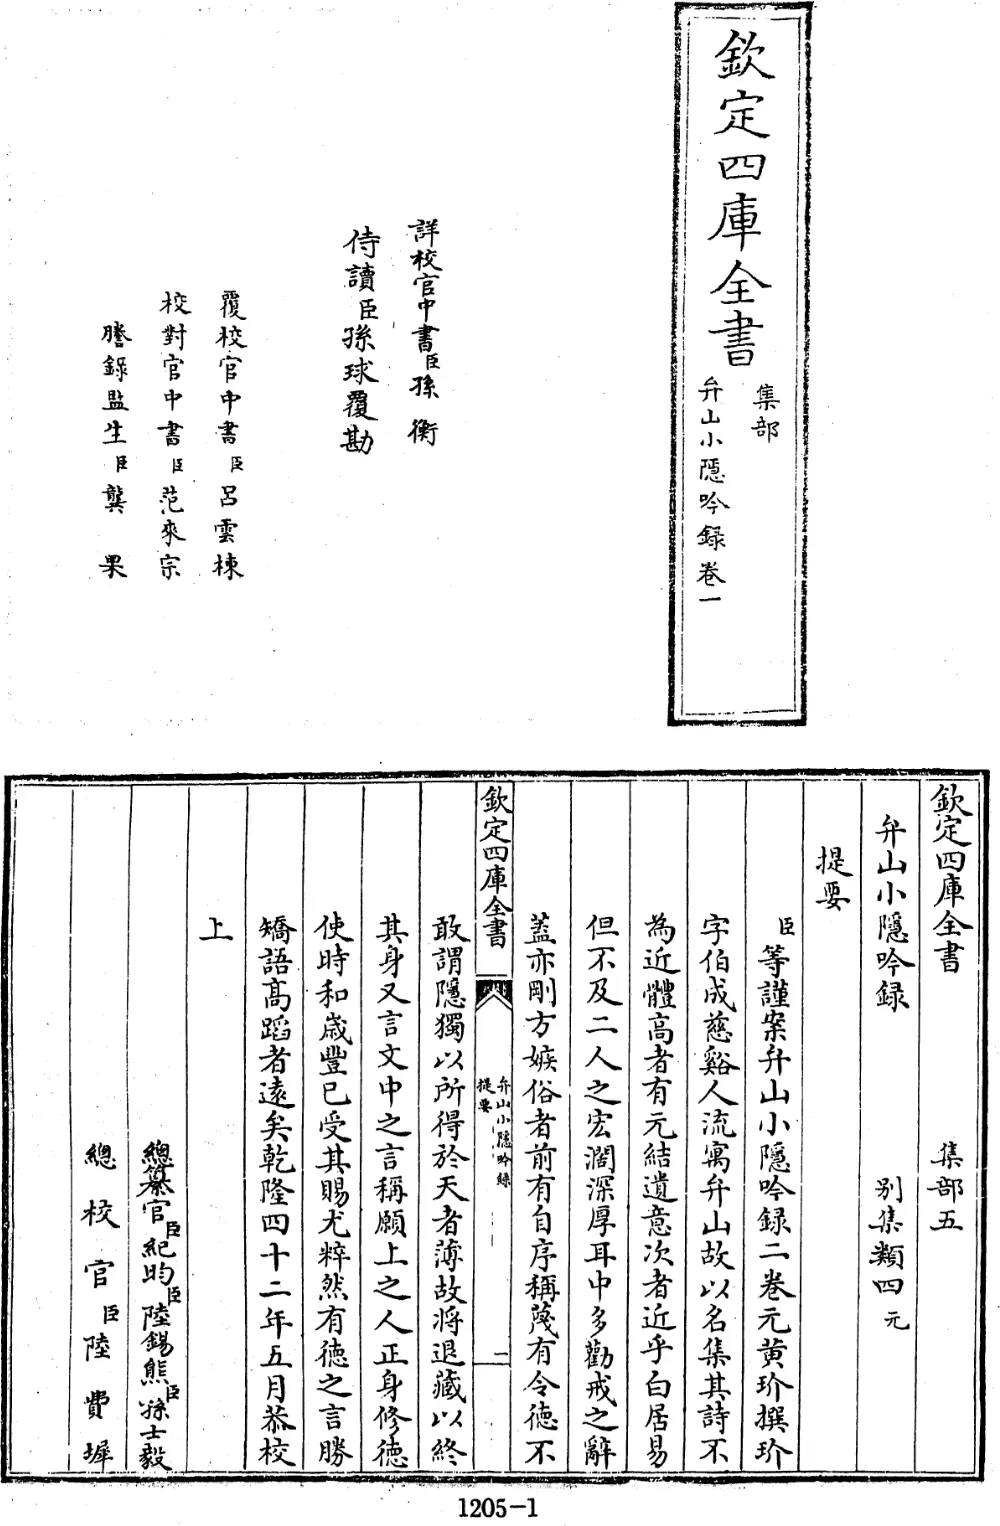 欽定四庫全書
集部
弁山小隱吟録卷一
詳校官中書臣孫衡
侍讀臣孫球覆勘
覆校官中書臣呂雲棟
校對官中書臣范來宗
謄錄監生臣龔果
欽定四庫全書 集部五
弁山小隱吟録 别集類四元
提要
臣等謹案弁山小隱吟録二卷元黄玠撰玠
字伯成慈谿人流寓弁山故以名集其詩不
為近體高者有元結遺意次者近乎白居易
但不及二人之宏濶深厚耳中多勸戒之辭
蓋亦剛方嫉俗者前有自序稱蔑有令德不
欽定四庫全書
弁山小隱吟録
提要
二
敢謂隱獨以所得於天者薄故將退藏以終
其身又言文中之言稱願上之人正身修德
使時和歲豐已受其賜尤粹然有德之言勝
矯語髙蹈者遠矣乾隆四十二年五月恭校
上
總纂官臣紀昀臣陸錫熊臣孫士毅
總校官臣陸費墀
1205-1